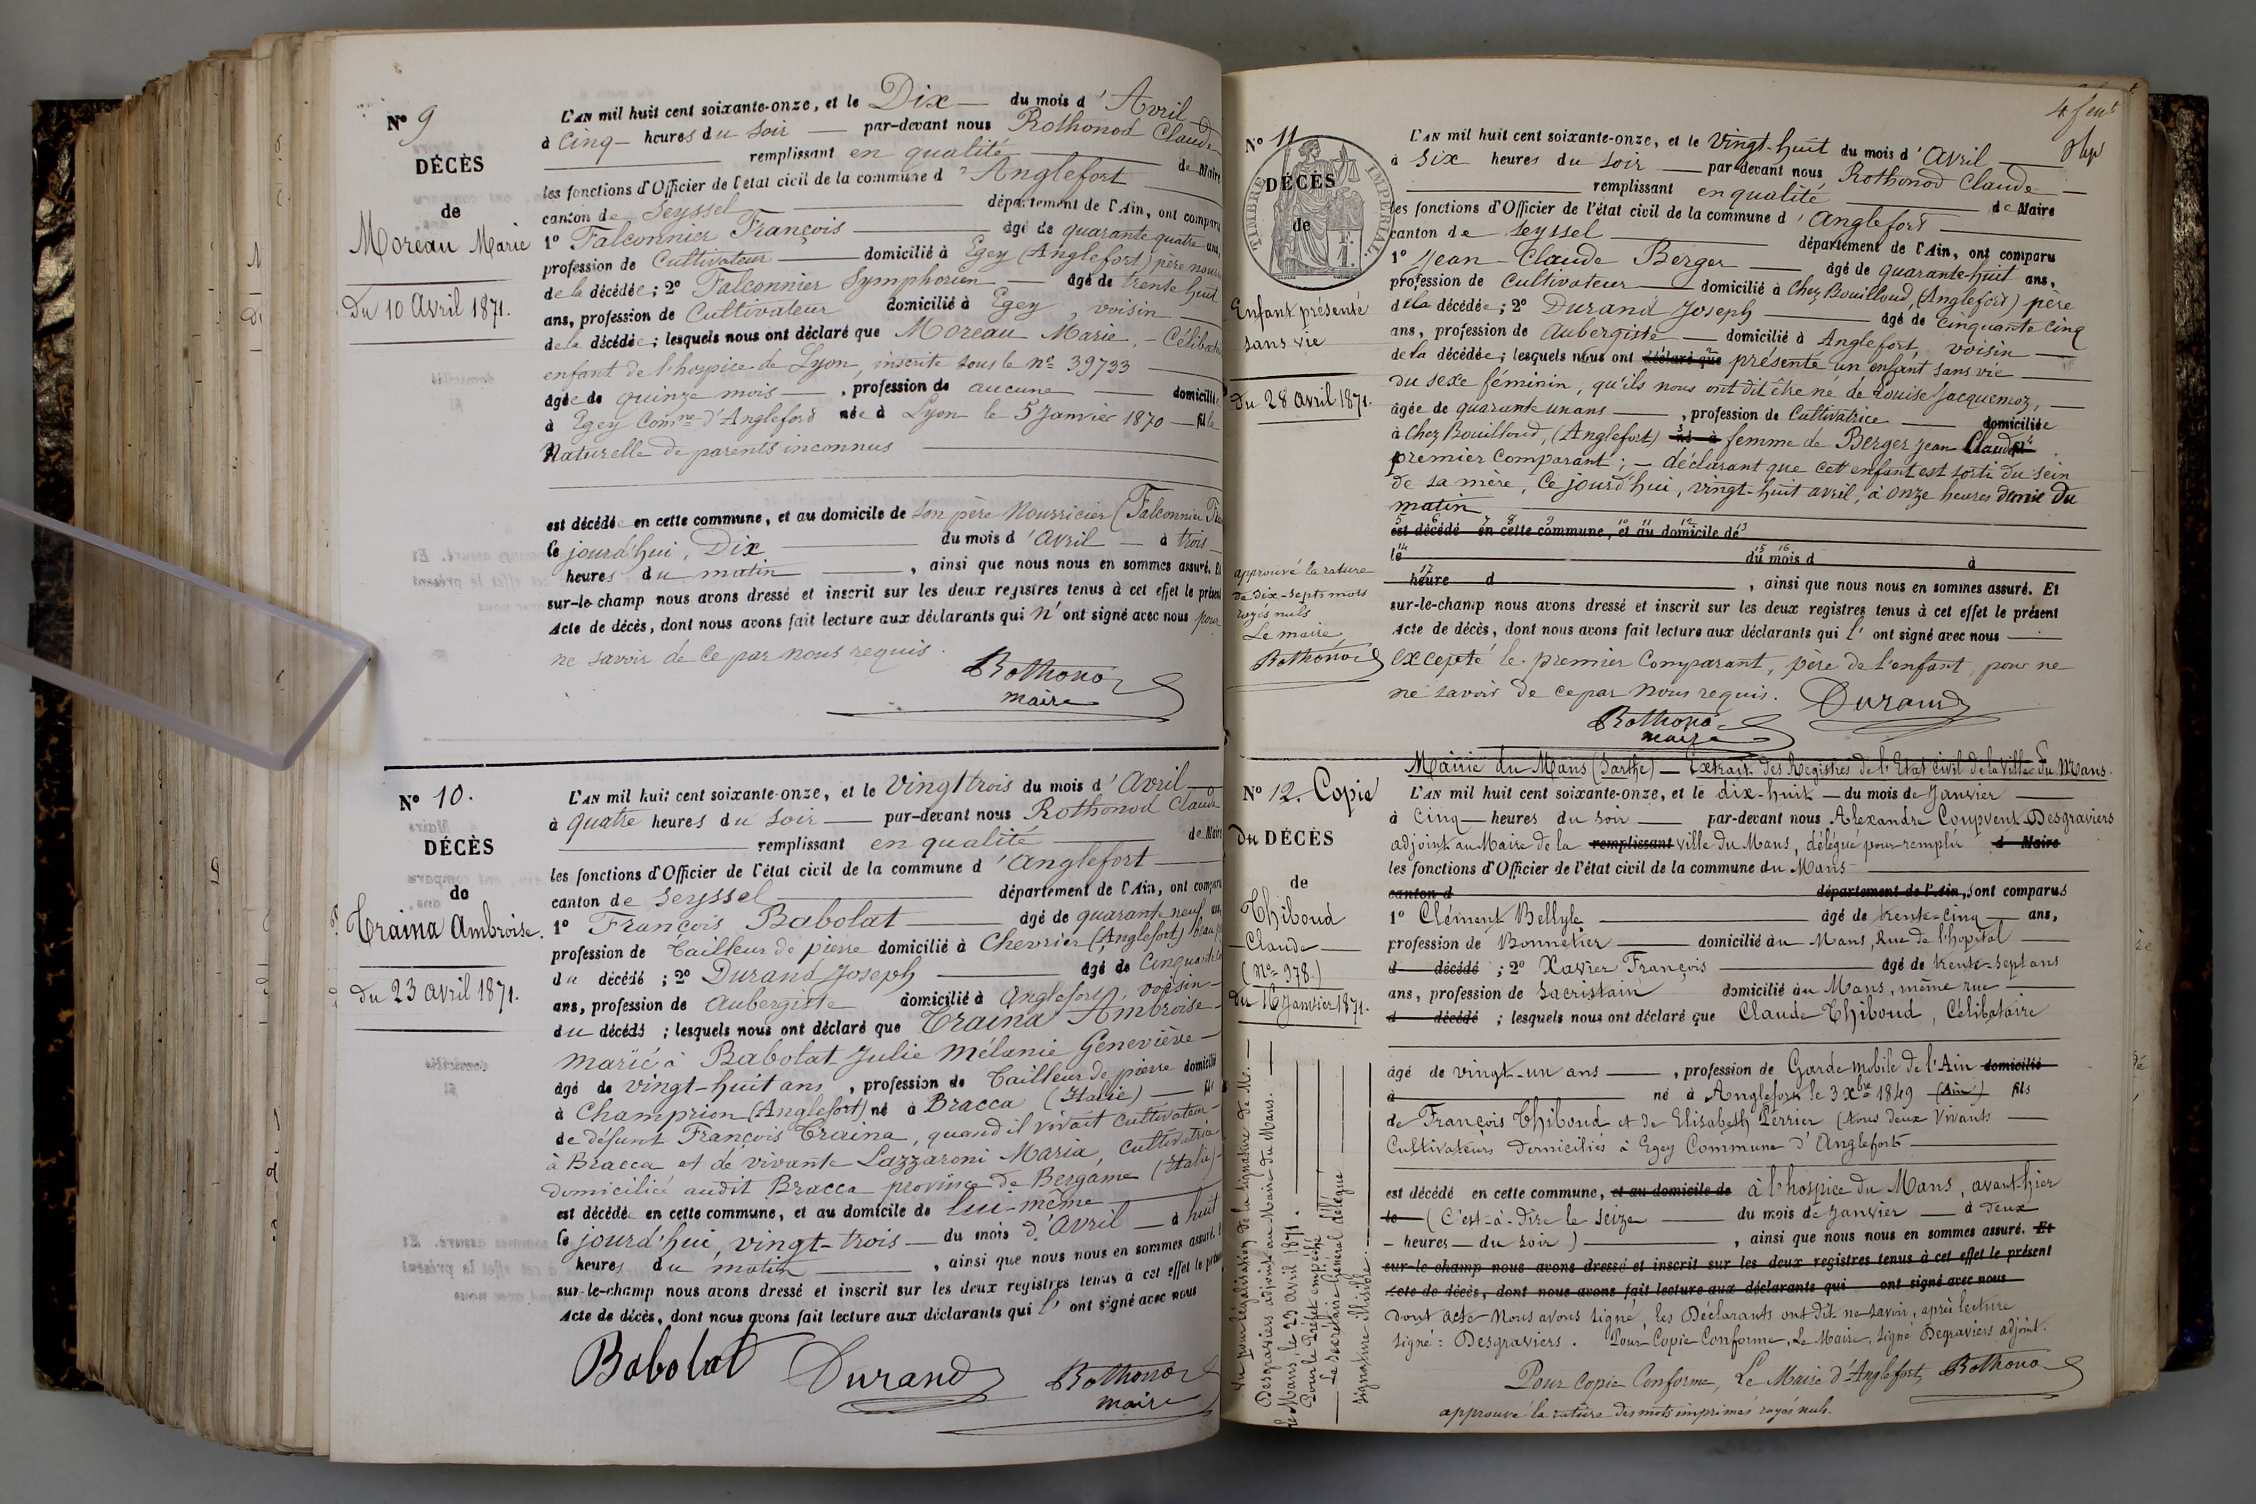 Nº 9
DÉCÈS
de
Moreau Marie
Du 10 Avril 1871.
L'AN mil huit cent soixante-onze, et le Dix du mois d'Avril
à Cinq heures du soir par-devant nous Rothonod Claude
remplissant en qualité de Maire
les fonctions d'Officier de l'état civil de la commune d'Anglefort
canton de Seyssel département de l'Ain, ont comparu
1º Falconnier François âgé de quarante quatre ans,
profession de Cultivateur domicilié à Egey (Anglefort) père nour
de la décédée; 2º Falconnier Symphorien âgé de trente huit
ans, profession de Cultivateur domicilié à Egey, voisin
de la décédée; lesquels nous ont déclaré que Moreau Marie, - Céliba
enfant de l'hospice de Lyon, inscrite sous le nº 39733
âgée de quinze mois, profession de aucune domicilié
à Egey Comne d'Anglefort née à Lyon le 5 Janvier 1870 fille
Naturelle de parents inconnus
est décédée en cette commune, et au domicile de son père Nourricier (Falconnier
Ce jourd'hui, Dix du mois d'Avril à trois
heures du matin, ainsi que nous nous en sommes assuré. Et
sur-le-champ nous avons dressé et inscrit sur les deux registres tenus à cet effet le présent
Acte de décès, dont nous avons fait lecture aux déclarants qui n'ont signé avec nous pour
ne savoir de ce par nous requis.
Rothonod
maire
Nº 10.
DÉCÈS
de
Traina Ambroise.
du 23 avril 1871.
L'AN mil huit cent soixante-onze, et le Vingt trois du mois d'Avril
à quatre heures du soir par-devant nous Rothonod Claude
remplissant en qualité de Maire
les fonctions d'Officier de l'état civil de la commune d'Anglefort
canton de Seyssel département de l'Ain, ont comparu
1º François Babolat âgé de quarante neuf ans,
profession de Tailleur de pierre domicilié à Chevrier (Anglefort) beau
du décédé; 2º Durand Joseph âgé de Cinquante
ans, profession de Aubergiste domicilié à Anglefort, voisin
du décédé; lesquels nous ont déclaré que Traina Ambroise
marié à Babolat Julie Mélanie Geneviève
âgé de vingt-huit ans, profession de Tailleur de pierre domicilié
à Champrion (Anglefort) né à Bracca (Italie) fils
de défunt François Traina, quand il vivait Cultivateur
à Bracca et de vivante Lazzaroni Maria, Cultivatrice
domiciliée audit Bracca province de Bergame (Italie)
est décédé en cette commune, et au domicile de lui-même
Ce jourd'hui, vingt-trois du mois d'Avril à huit
heures du matin, ainsi que nous nous en sommes assuré. Et
sur-le-champ nous avons dressé et inscrit sur les deux registres tenus à cet effet le présent
Acte de décès, dont nous avons fait lecture aux déclarants qui l'ont signé avec nous
Babolat Durand Rothonod
maire
4 feut
Nº 11
TIMBRE IMPÉRIAL
1 F.
DÉCÈS
de
Enfant présenté
sans vie
Du 28 avril 1871.
approuvé la rature
de Dix-sept mots
rayés nuls
Le maire
Rothonod
L'AN mil huit cent soixante-onze, et le Vingt-huit du mois d'Avril
à six heures du soir par-devant nous Rothonod Claude
remplissant en qualité de Maire
les fonctions d'Officier de l'état civil de la commune d'Anglefort
canton de Seyssel département de l'Ain, ont comparu
1º Jean-Claude Berger âgé de quarante-huit ans,
profession de Cultivateur domicilié à Chez Bouilloud, (Anglefort) père
de la décédée; 2º Durand Joseph âgé de Cinquante cinq
ans, profession de Aubergiste domicilié à Anglefort, voisin
de la décédée; lesquels nous ont déclaré que présenté un enfant sans vie
du sexe féminin, qu'ils nous ont dit être né de Louise Jacquemoz,
âgée de quarante un ans, profession de Cultivatrice domiciliée
à Chez Bouilloud, (Anglefort) né à femme de Berger Jean Claude fil
premier Comparant; - déclarant que cet enfant est sorti du sein
de sa mère, Ce jourd'hui, vingt-huit avril, à onze heures du
matin
est décédé en cette commune, et au domicile de
le du mois d à
heure d, ainsi que nous nous en sommes assuré. Et
sur-le-champ nous avons dressé et inscrit sur les deux registres tenus à cet effet le présent
Acte de décès, dont nous avons fait lecture aux déclarants qui l'ont signé avec nous
excepté le premier Comparant, père de l'enfant, pour ne
ne savoir de ce par nous requis. Durand
Rothonod
maire
Mairie du Mans (Sarthe) - Extrait des Registres de l'Etat civil de la Ville du Mans.
Nº 12. Copie
du DÉCÈS
de
Thiboud
Claude
(Nº 978.)
du 16 Janvier 1871.
L'AN mil huit cent soixante-onze, et le dix-huit du mois de Janvier
à Cinq heures du soir par-devant nous Alexandre Coupvent-Desgraviers
adjoint au Maire de la remplissant ville du Mans, délégué pour remplir d Maire
les fonctions d'Officier de l'état civil de la commune du Mans
canton d département de l'Ain, sont comparus
1º Clément Bellyle âgé de trente-cinq ans,
profession de Bonnetier domicilié au Mans, Rue de l'hopital
d décédé; 2º Xavier François âgé de trente-sept ans
ans, profession de Sacristain domicilié au Mans, même rue
d décédé; lesquels nous ont déclaré que Claude Thiboud, Célibataire
âgé de vingt-un ans, profession de Garde mobile de l'Ain domicilié
à né à Anglefort le 3 Xbre 1849 (Ain) fils
de François Thiboud et de Elisabeth Perrier (tous deux Vivants
Cultivateurs domiciliés à Egey Commune d'Anglefort
est décédé en cette commune, et au domicile de à l'hospice du Mans, avant-hier
le (C'est-à-dire le seize du mois de Janvier à deux
heures du soir), ainsi que nous nous en sommes assuré. Et
sur-le-champ nous avons dressé et inscrit sur les deux registres tenus à cet effet le présent
Acte de décès, dont nous avons fait lecture aux déclarants qui ont signé avec nous
dont acte Nous avons signé, les Déclarants ont dit ne savoir, après lecture
signé: Desgraviers. Pour Copie Conforme, Le Maire, signé Degraviers adjoint.
Pour Copie Conforme, Le Maire d'Anglefort, Rothonod
approuvé la rature des mots imprimés rayés nuls.
Vu pour légalisation de la signature de Mr.
Desgraviers adjoint au Maire du Mans.
Le Mans, le 23 avril 1871.
Pour le Préfet empêché
Le secrétaire Général délégué
signature illisible.